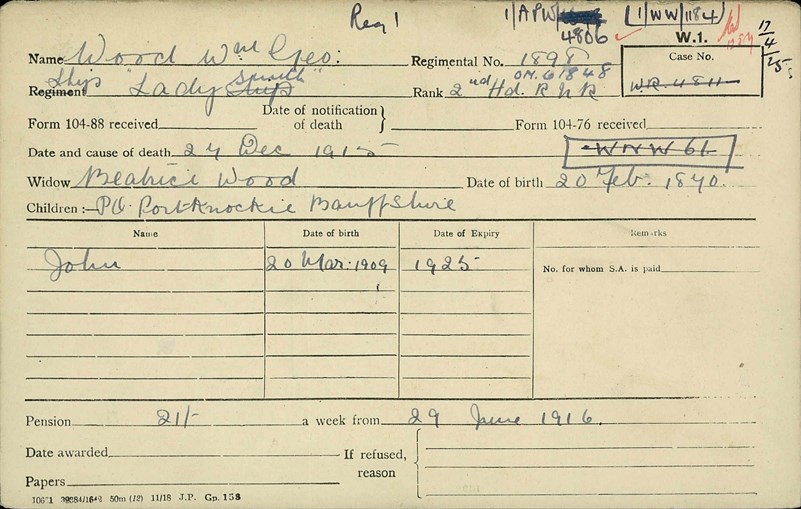 Reg 1 1/APW/ 4806 1/WW/1184 W.1. 17/4/25
Name Wood Wm Geo: Regimental No. 1898 Case No.
Regiment Ships "Lady Smith" Rank 2nd Hd. R N R ON. 61848 WR. 4811
Form 104-88 received Date of notification of death } Form 104-76 received
Date and cause of death 27 Dec 1915 WNW 61
Widow Beatrice Wood Date of birth 20 Feb. 1870.
Children :— PO. Portknockie Banffshire
Name Date of birth Date of Expiry Remarks
John 20 Mar. 1909 1925 No. for whom S.A. is paid
Pension 21/- a week from 29 June 1916.
Date awarded If refused, reason
Papers
39884/1642 50m (12) 11/18 J.P. Gp. 158